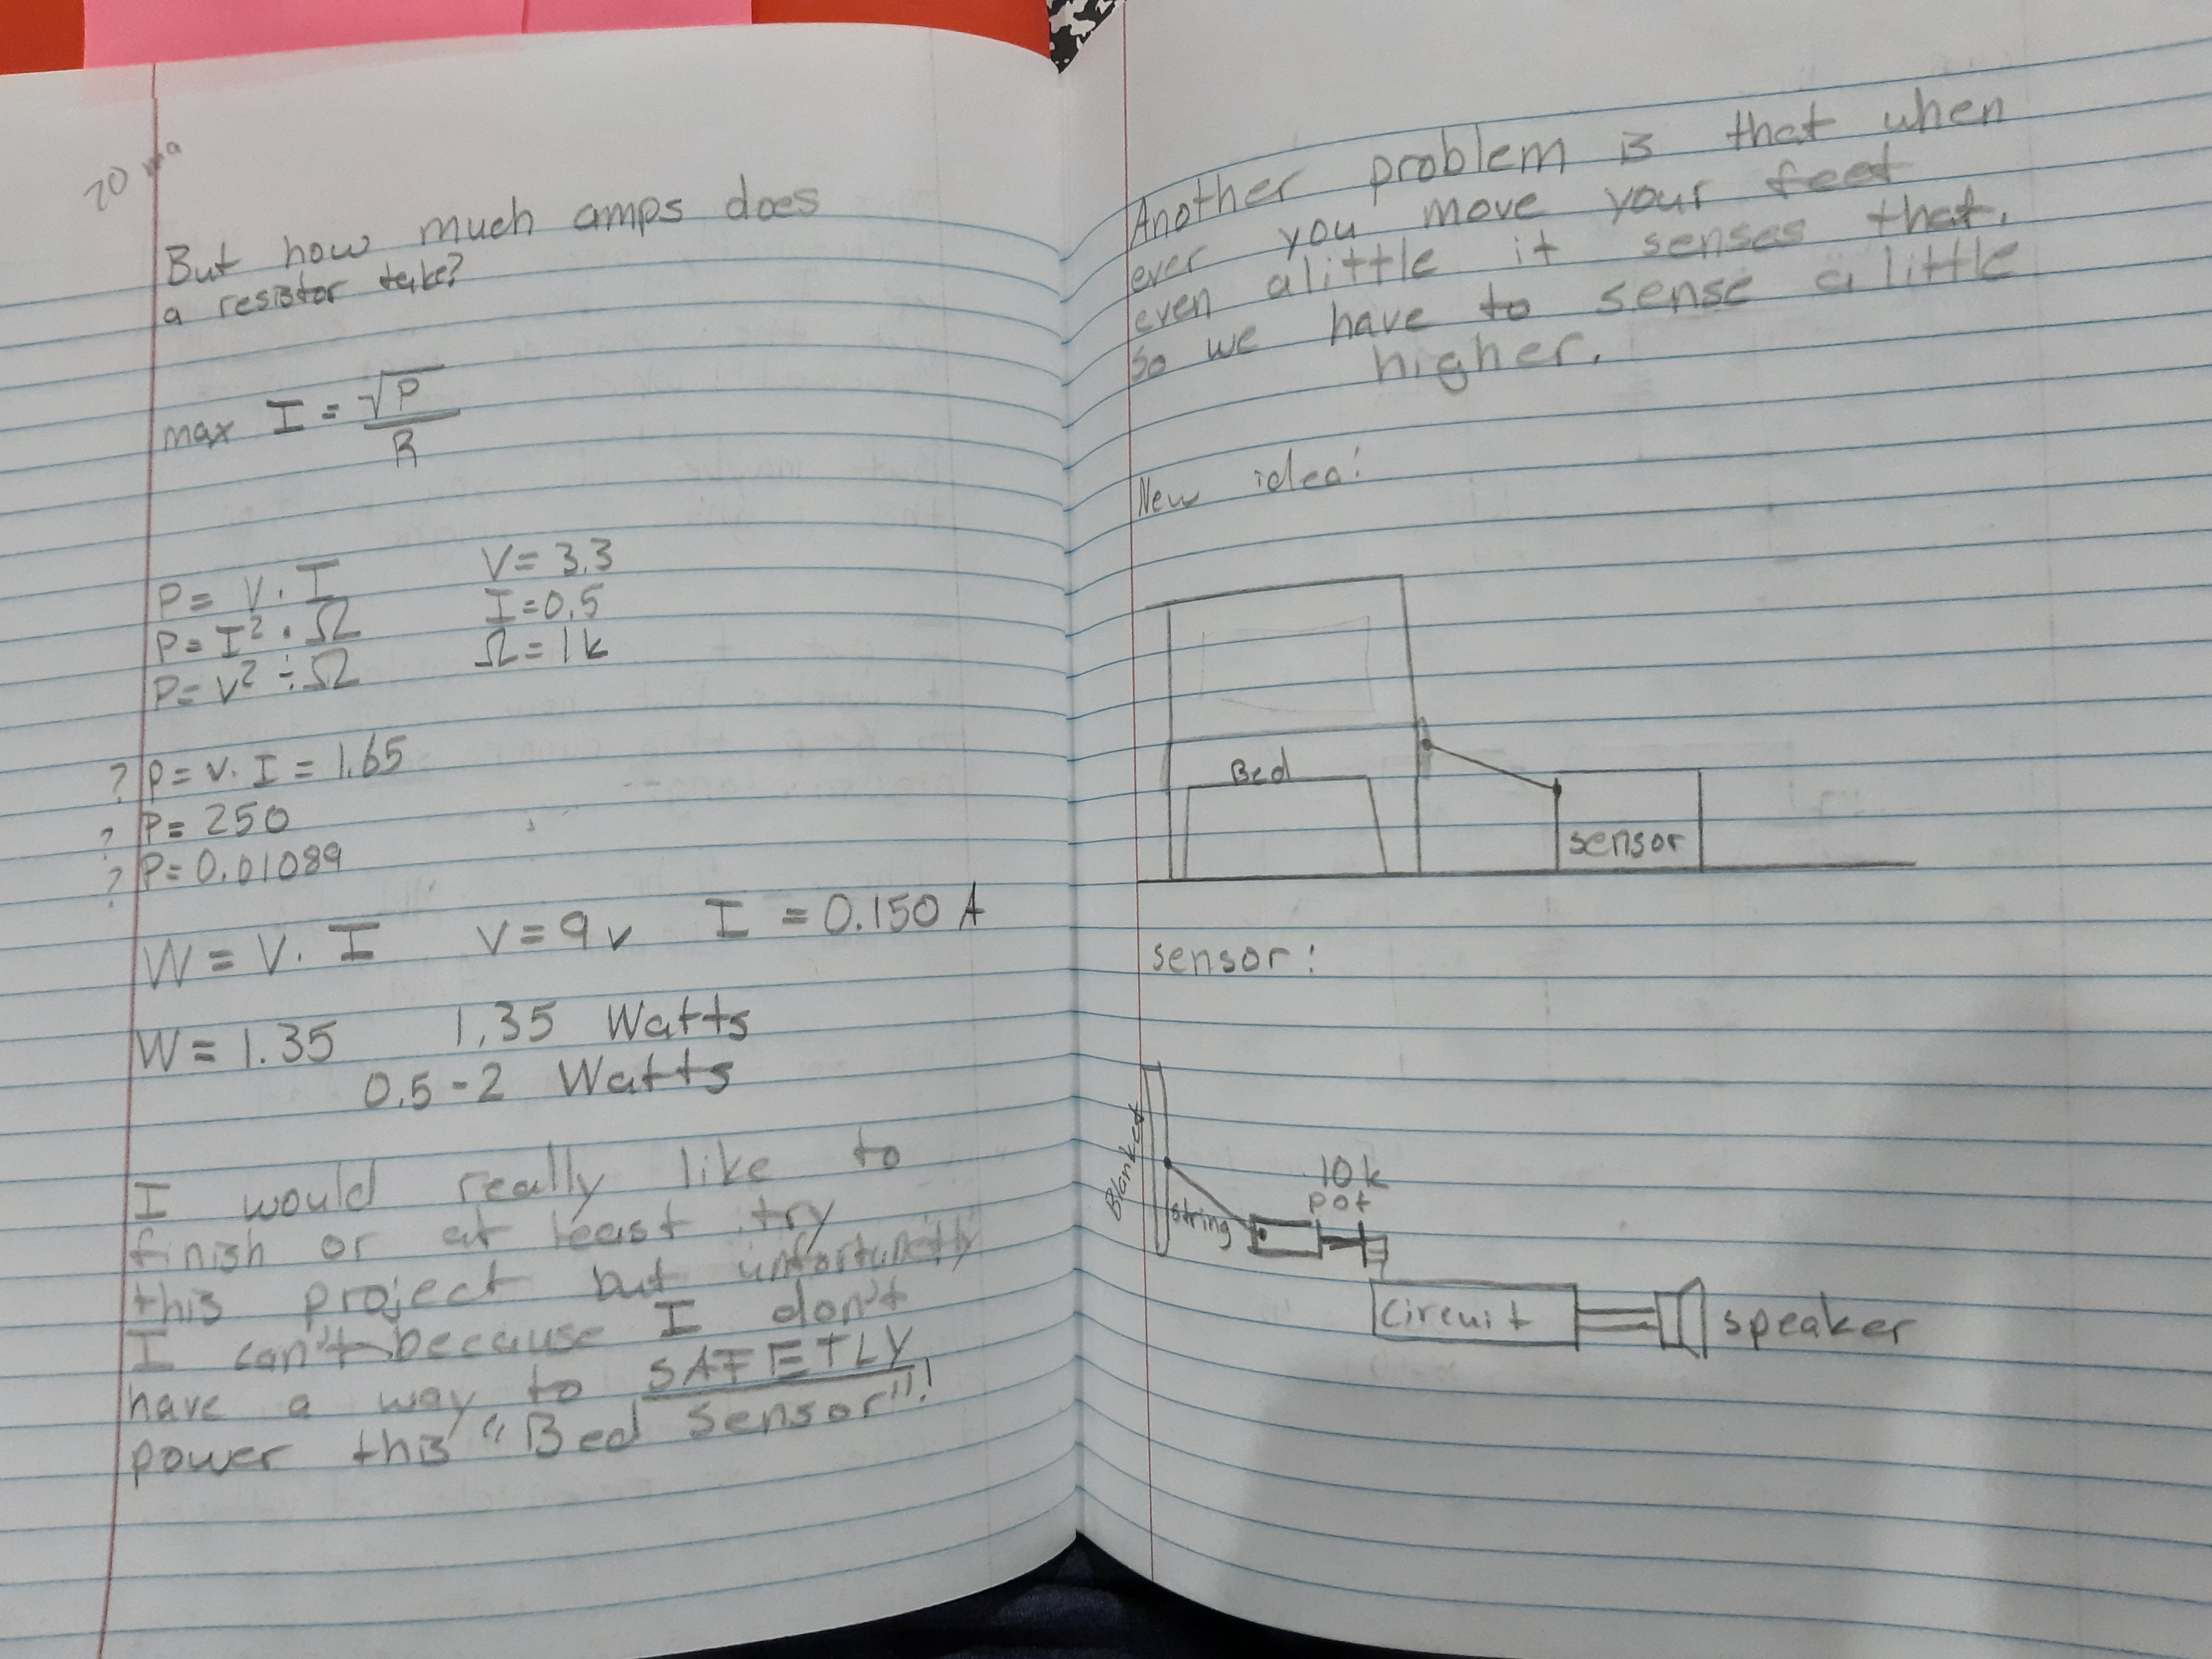 20 ma
But how much amps does
a resistor take?
max I = √P / R
P = V · I V = 3.3
P = I² · Ω I = 0.5
P = V² ÷ Ω Ω = 1k
? P = V · I = 1.65
? P = 250
? P = 0.01089
W = V · I V = 9v I = 0.150 A
W = 1.35 1.35 Watts
0.5 - 2 Watts
I would really like to
finish or at least try
this project but unfortunetly
I can't because I don't
have a way to SAFETLY
power this "Bed Sensor"!
Another problem is that when
ever you move your feet
even alittle it senses that.
So we have to sense a little
higher.
New idea:
Bed
sensor
sensor:
Blanket
string
10k
pot
circuit
speaker